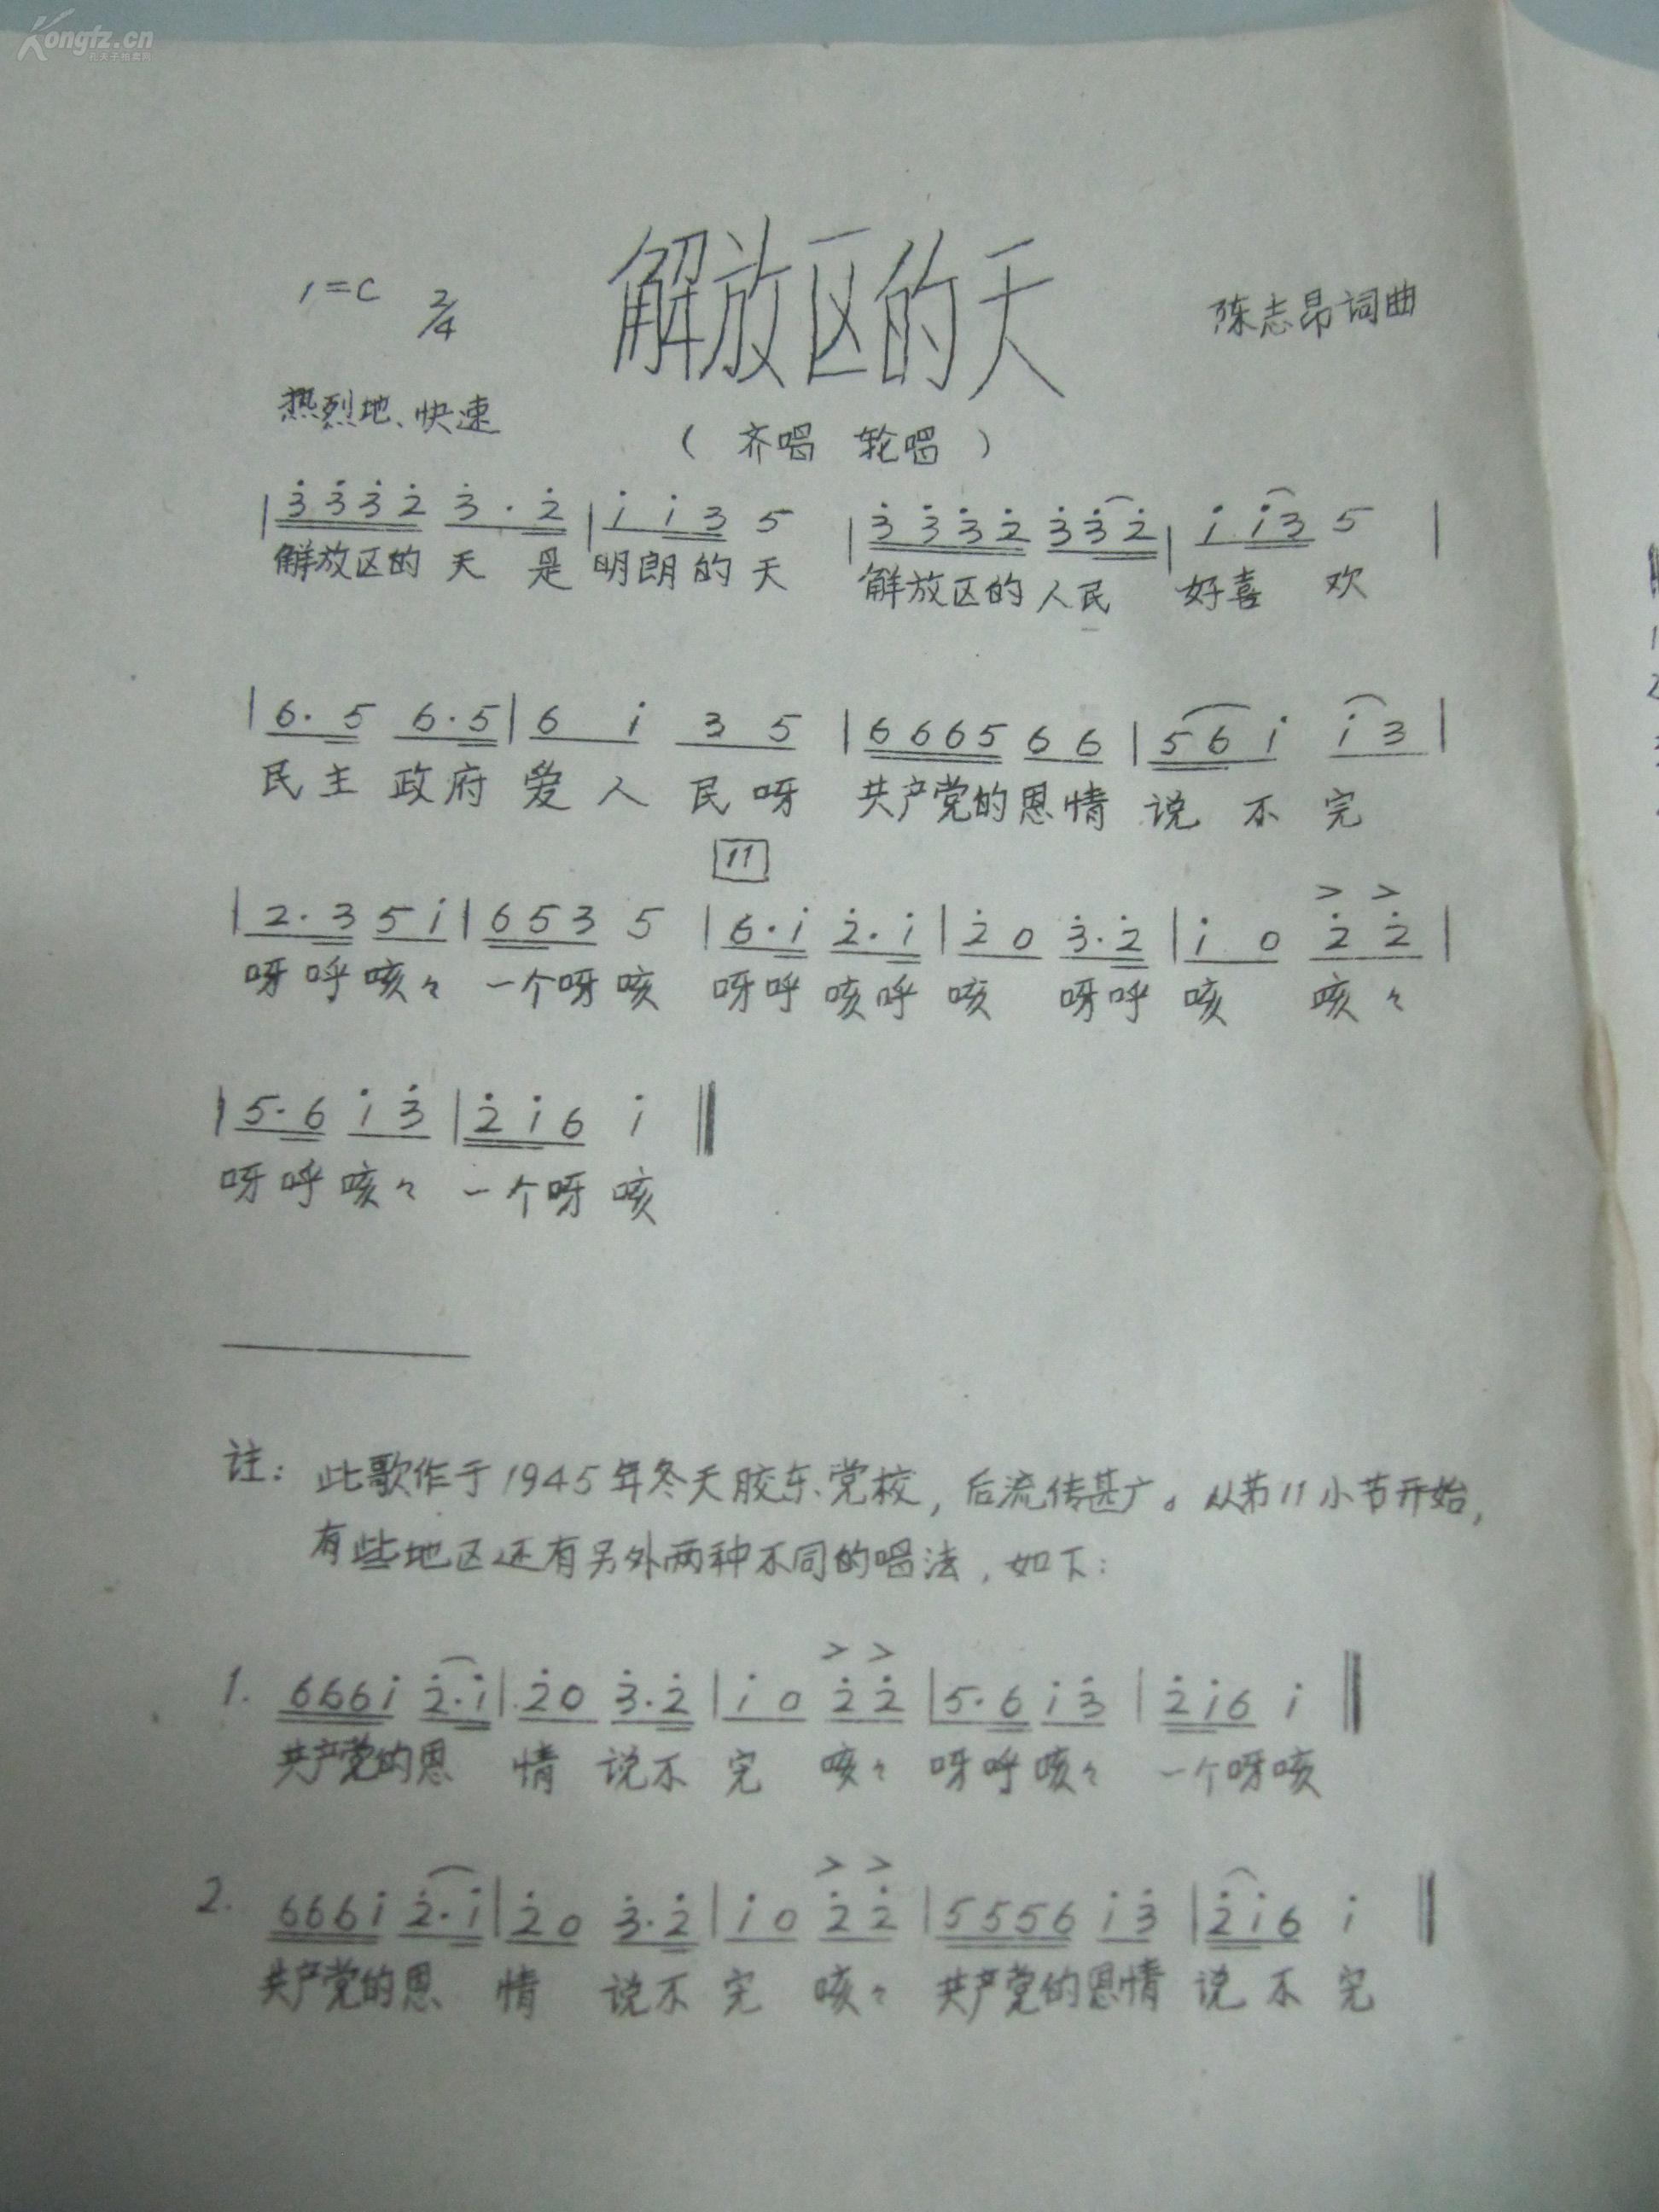 Kongfz.cn
解放区的天
1=C 2/4
陈志昂词曲
热烈地、快速
(齐唱 轮唱)
|3̇3̇3̇2̇ 3̇·2̇|1̇ 1̇3 5 |3̇3̇3̇2̇ 3̇3̇2̇|1̇ 1̇3 5 |
解放区的 天 是 明朗的天 解放区的人民 好喜 欢
|6·5 6·5|6 1̇ 3 5 |6665 66|561̇ 1̇3|
民主 政府 爱人 民呀 共产党的恩情 说不完
11
|2·3 51̇|653 5 |6·1̇ 2̇·1̇|2̇0 3̇·2̇|1̇ 0 2̇ 2̇|
呀呼咳々 一个呀咳 呀呼 咳呼 咳 呀呼 咳 咳々
|5·6 1̇3̇|2̇1̇6 1̇ ‖
呀呼咳々 一个呀咳
注: 此歌作于1945年冬天胶东党校, 后流传甚广。从第11小节开始,
有些地区还有另外两种不同的唱法, 如下:
1. 6661̇ 2̇·1̇|2̇0 3̇·2̇|1̇ 0 2̇2̇|5·6 1̇3̇|2̇1̇6 1̇ ‖
共产党的恩 情 说不 完 咳々 呀呼咳々 一个呀咳
2. 6661̇ 2̇·1̇|2̇0 3̇·2̇|1̇0 2̇2̇|5556 1̇3̇|2̇1̇6 1̇ ‖
共产党的恩 情 说不 完 咳々 共产党的恩情 说不 完